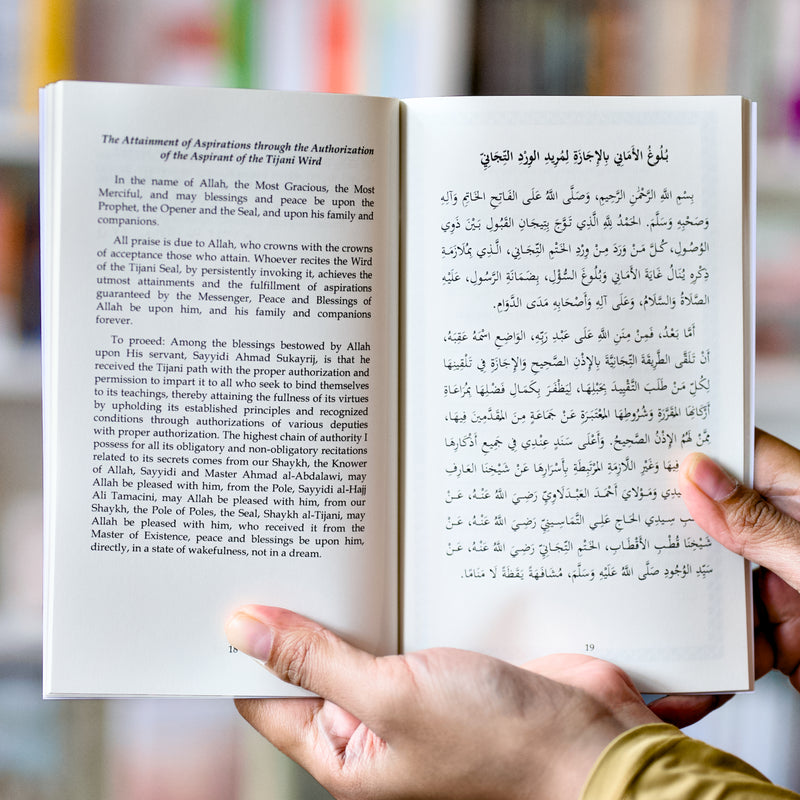 The Attainment of Aspirations through the Authorization
of the Aspirant of the Tijani Wird
In the name of Allah, the Most Gracious, the Most
Merciful, and may blessings and peace be upon the
Prophet, the Opener and the Seal, and upon his family and
companions.
All praise is due to Allah, who crowns with the crowns
of acceptance those who attain. Whoever recites the Wird
of the Tijani Seal, by persistently invoking it, achieves the
utmost attainments and the fulfillment of aspirations
guaranteed by the Messenger, Peace and Blessings of
Allah be upon him, and his family and companions
forever.
To proeed: Among the blessings bestowed by Allah
upon His servant, Sayyidi Ahmad Sukayrij, is that he
received the Tijani path with the proper authorization and
permission to impart it to all who seek to bind themselves
to its teachings, thereby attaining the fullness of its virtues
by upholding its established principles and recognized
conditions through authorizations of various deputies
with proper authorization. The highest chain of authority I
possess for all its obligatory and non-obligatory recitations
related to its secrets comes from our Shaykh, the Knower
of Allah, Sayyidi and Master Ahmad al-Abdalawi, may
Allah be pleased with him, from the Pole, Sayyidi al-Hajj
Ali Tamacini, may Allah be pleased with him, from our
Shaykh, the Pole of Poles, the Seal, Shaykh al-Tijani, may
Allah be pleased with him, who received it from the
Master of Existence, peace and blessings be upon him,
directly, in a state of wakefulness, not in a dream.
18
بُلُوغُ الأَمَانِي بِالإِجَازَةِ لِمُرِيدِ الوِرْدِ التِّجَانِيِّ
بِسْمِ اللَّهِ الرَّحْمٰنِ الرَّحِيمِ، وَصَلَّى اللَّهُ عَلَى الفَاتِحِ الخَاتِمِ وَآلِهِ
وَصَحْبِهِ وَسَلَّمَ. الحَمْدُ لِلَّهِ الَّذِي تَوَّجَ بِتِيجَانِ القَبُولِ بَيْنَ ذَوِي
الوُصُولِ، كُلَّ مَنْ وَرَدَ مِنْ وِرْدِ الخَتْمِ التِّجَانِي، الَّذِي بِمُلَازَمَةِ
ذِكْرِهِ يُنَالُ غَايَةَ الأَمَانِي وَبُلُوغَ السُّؤْلِ، بِضَمَانَةِ الرَّسُولِ، عَلَيْهِ
الصَّلَاةُ وَالسَّلَامُ، وَعَلَى آلِهِ وَأَصْحَابِهِ مَدَى الدَّوَامِ.
أَمَّا بَعْدُ، فَمِنْ مِنَنِ اللَّهِ عَلَى عَبْدِ رَبِّهِ، الوَاضِعِ اسْمَهُ عَقِبَهُ،
أَنْ تَلَقَّى الطَّرِيقَةَ التِّجَانِيَّةَ بِالإِذْنِ الصَّحِيحِ وَالإِجَازَةِ فِي تَلْقِينِهَا
لِكُلِّ مَنْ طَلَبَ التَّقْيِيدَ بِحَبْلِهَا، لِيَظْفَرَ بِكَمَالِ فَضْلِهَا بِمُرَاعَاةِ
أَرْكَانِهَا المُقَرَّرَةِ وَشُرُوطِهَا المُعْتَبَرَةِ عَنْ جَمَاعَةٍ مِنَ المُقَدَّمِينَ فِيهَا،
مِمَّنْ لَهُمُ الإِذْنُ الصَّحِيحُ. وَأَعْلَى سَنَدٍ عِنْدِي فِي جَمِيعِ أَذْكَارِهَا
فِيهَا وَغَيْرِ اللَّازِمَةِ المُرْتَبِطَةِ بِأَسْرَارِهَا عَنْ شَيْخِنَا العَارِفِ
سِيدِي وَمَوْلَايَ أَحْمَدَ العَبْدَلَاوِيِّ رَضِيَ اللَّهُ عَنْهُ، عَنْ
سِيدِي الحَاجِّ عَلِي التَّمَاسِينِيِّ رَضِيَ اللَّهُ عَنْهُ، عَنْ
شَيْخِنَا قُطْبِ الأَقْطَابِ، الخَتْمِ التِّجَانِيِّ رَضِيَ اللَّهُ عَنْهُ، عَنْ
سَيِّدِ الوُجُودِ صَلَّى اللَّهُ عَلَيْهِ وَسَلَّمَ، مُشَافَهَةً يَقَظَةً لَا مَنَامًا.
19